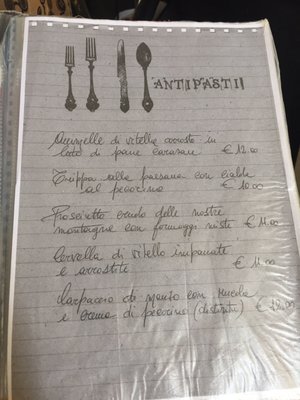 ANTIPASTI
Animelle di vitello arrosto in
letto di pane carasau € 12.00
Trippa alla paesana con cialda
al pecorino € 10.00
Prosciutto crudo delle nostre
montagne con formaggi misti € 14.00
Cervella di vitello impanate
e arrostite € 11.00
Carpaccio di manzo con rucola
e crema di pecorino (destrutt)